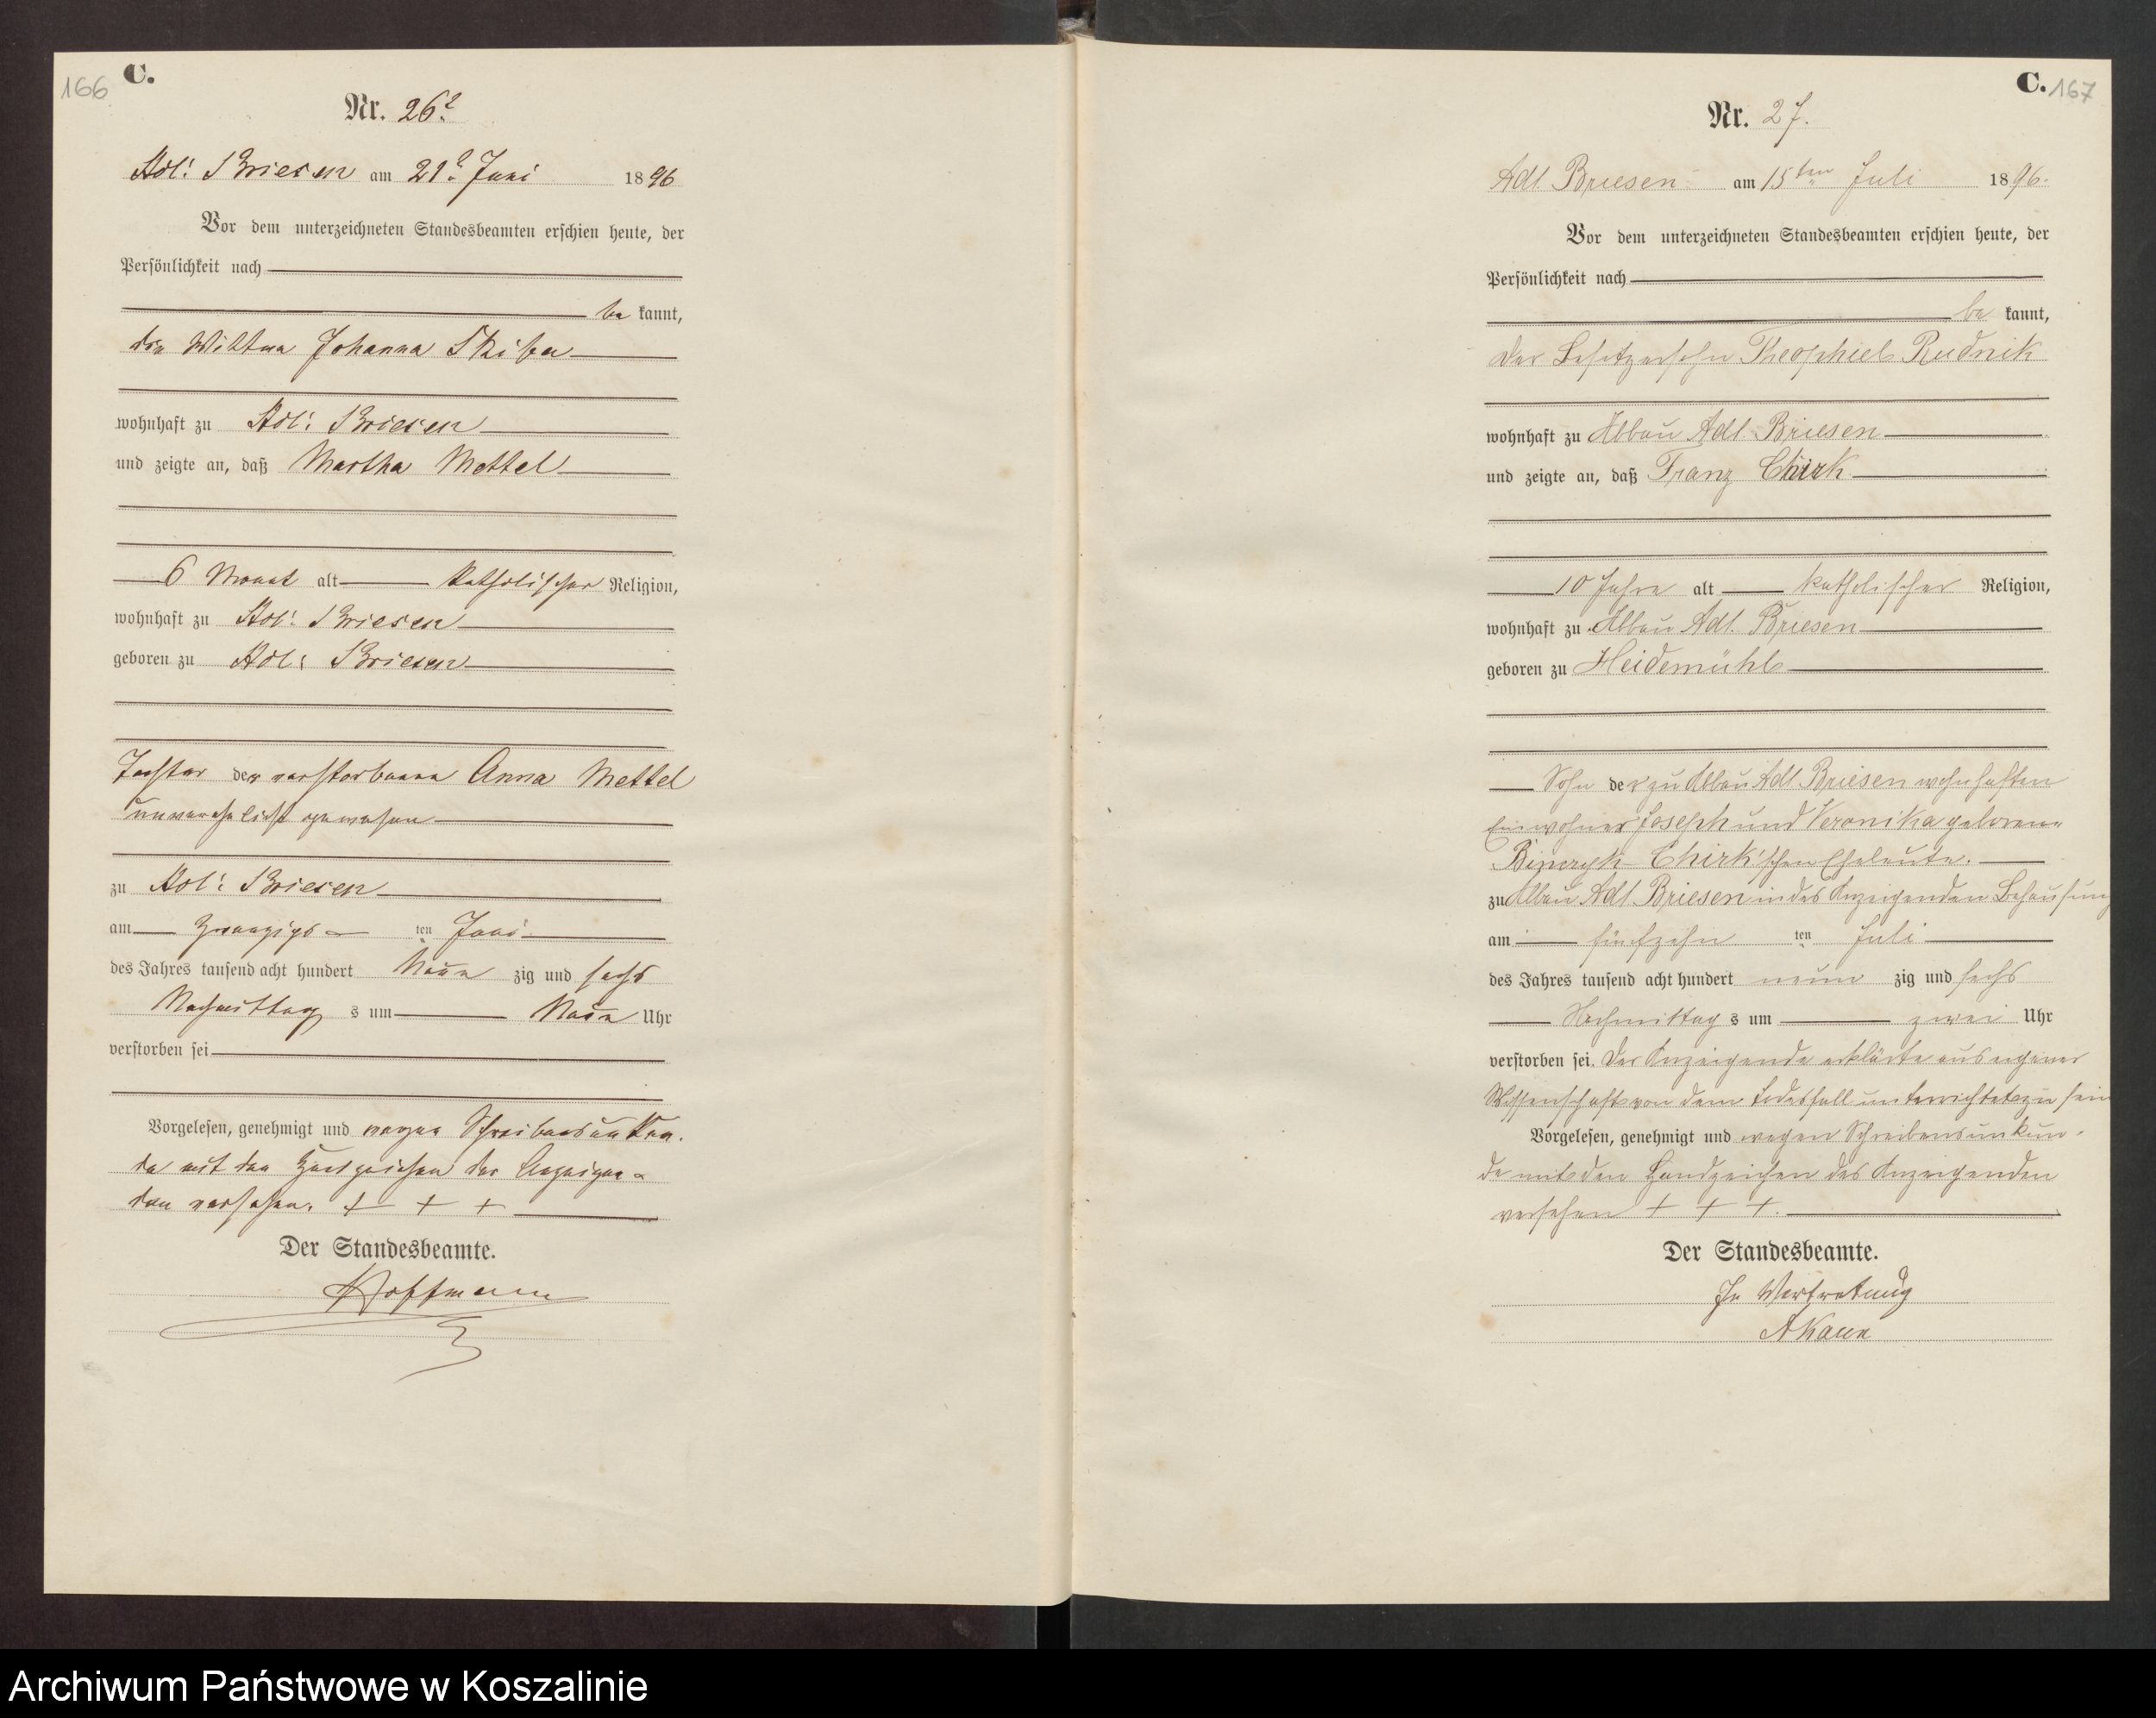 166 C.
Nr. 26.
Adl: Briesen am 21. Juni 1896
Vor dem unterzeichneten Standesbeamten erschien heute, der
Persönlichkeit nach
be kannt,
die Wittwe Johanna Skiba
wohnhaft zu Adl: Briesen
und zeigte an, daß Martha Mettel
6 Monat alt katholischer Religion,
wohnhaft zu Adl: Briesen
geboren zu Adl: Briesen
Tochter der verstorbenen Anna Mettel
unverehelicht gewesen
zu Adl: Briesen
am Zwanzigs ten Juni
des Jahres tausend acht hundert Neun zig und sechs
Nachmittag s um Neun Uhr
verstorben sei
Vorgelesen, genehmigt und wegen Schreibensunkun-
de mit den Handzeichen der Anzeigen-
den versehen. + + +
Der Standesbeamte.
Hoffmann
C. 167
Nr. 27.
Adl. Briesen am 15ten Juli 1896.
Vor dem unterzeichneten Standesbeamten erschien heute, der
Persönlichkeit nach
be kannt,
der Besitzersohn Theophiel Rudnik
wohnhaft zu Abbau Adl. Briesen
und zeigte an, daß Franz Chirk
10 Jahre alt katholischer Religion,
wohnhaft zu Abbau Adl. Briesen
geboren zu Heidemühl
Sohn der zu Abbau Adl. Briesen wohnhaften
Einwohner Joseph und Veronika geboren
Chirk'schen Eheleute.
zu Abbau Adl. Briesen in des Anzeigenden Behausung
am fünfzehn ten Juli
des Jahres tausend acht hundert neun zig und sechs
Nachmittag s um zwei Uhr
verstorben sei. Der Anzeigende erklärte aus eigener
Wissenschaft von dem Todesfall unterrichtet zu sein
Vorgelesen, genehmigt und wegen Schreibensunkun-
de mit den Handzeichen des Anzeigenden
versehen + + +.
Der Standesbeamte.
In Vertretung
Archiwum Państwowe w Koszalinie